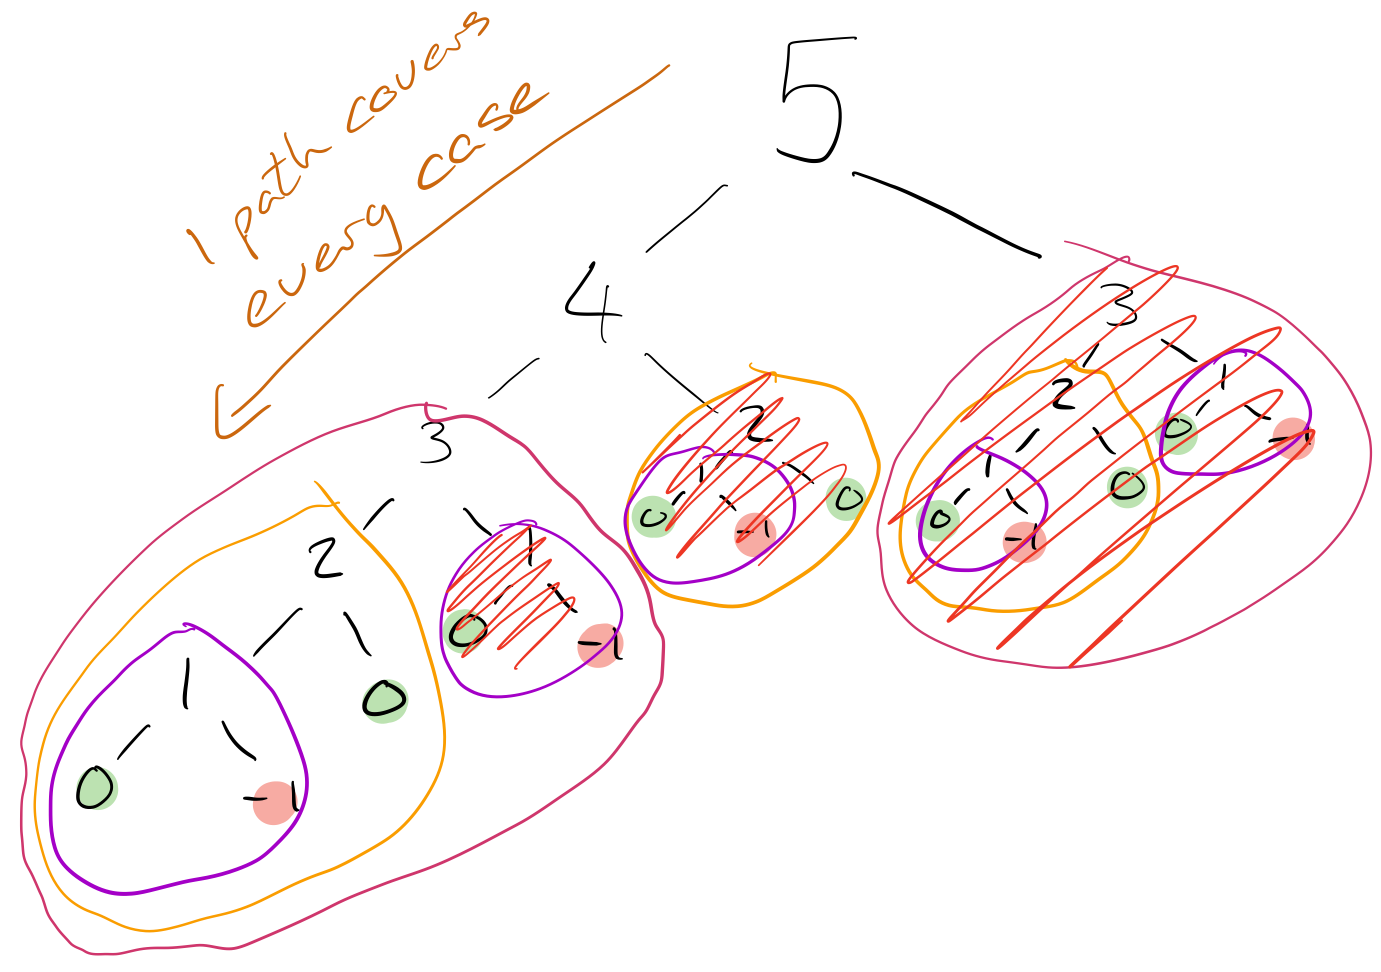 1 path covers
every case
5
4
3
3
2
2
1
1
2
1
0
0
-1
0
-1
0
-1
1
0
0
-1
0
-1